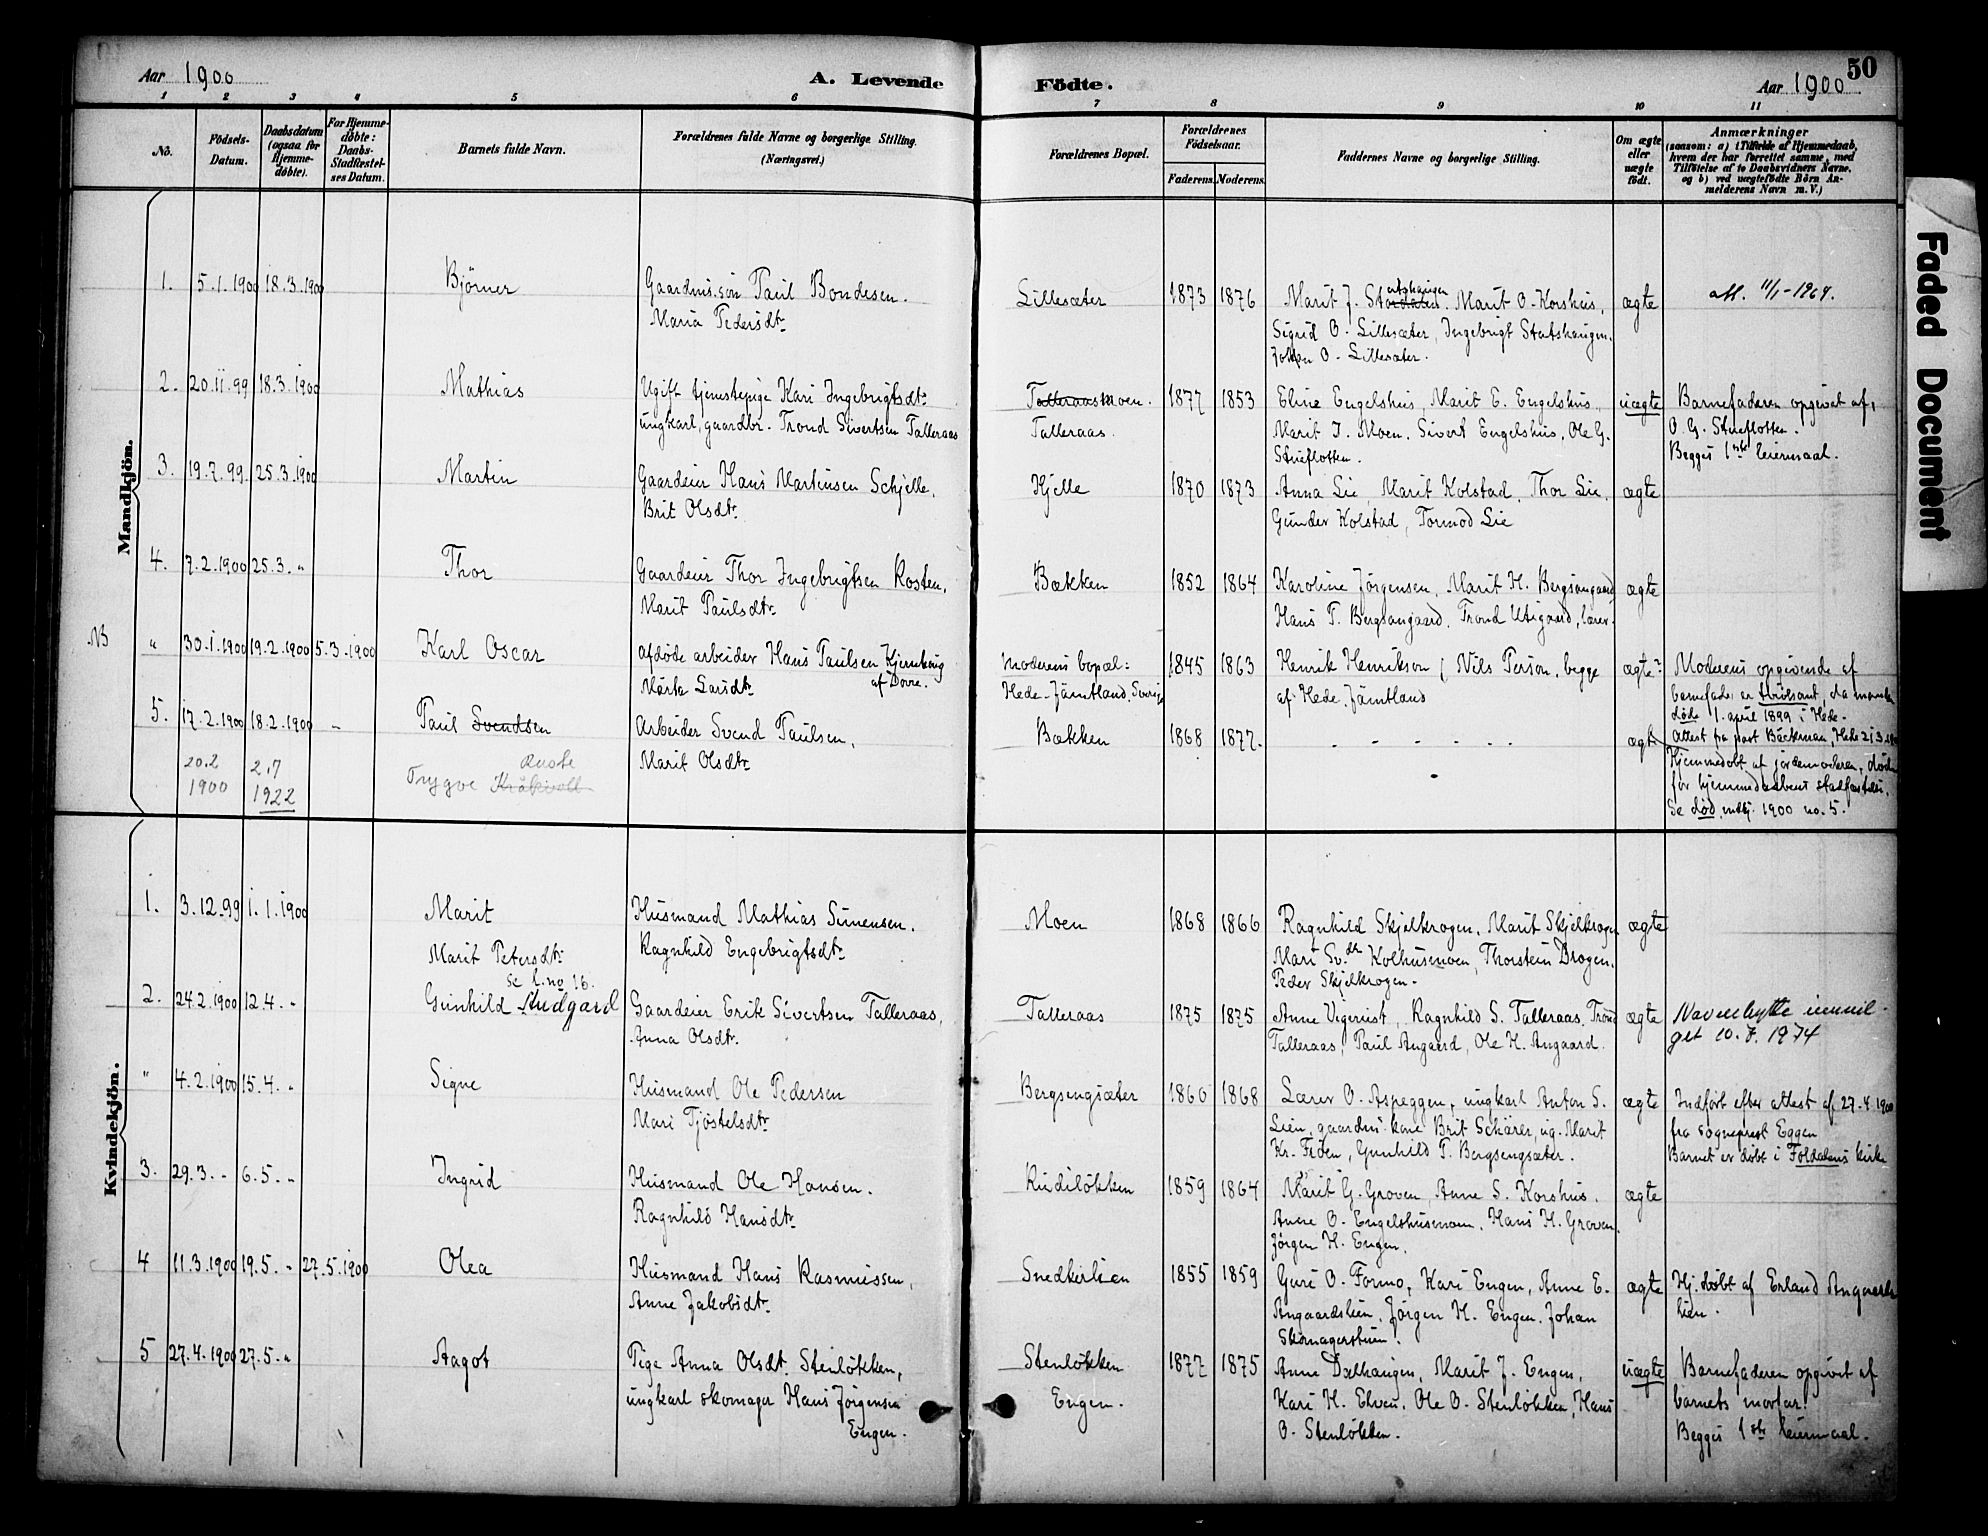 Aar 1900
A. Levende
Födte.
Aar 1900
50
1 2 3 4 5 6 7 8 9 10 11
No.
Födsels-
Datum.
Daabsdatum
(ogsaa for
Hjemme-
döbte).
For Hjemme-
döbte:
Daabs-
Stadfæstel-
ses Datum.
Barnets fulde Navn.
Forældrenes fulde Navne og borgerlige Stilling.
(Næringsvei.)
Forældrenes Bopæl.
Forældrenes
Födselsaar.
Faderens.
Moderens.
Faddernes Navne og borgerlige Stilling.
Om ægte
eller
uægte
födt.
Anmærkninger
(saasom: a) i Tilfælde af Hjemmedaab,
hvem der har forrettet samme, med
Tilföielse af to Daabsvidners Navne,
og b) ved uægtefödte Börn An-
melderens Navn m. V.)
Faded Document
Mandkjön.
1. 5.1.1900 18.3.1900 Bjørner
Gaardms.søn Paul Bondesen.
Maria Pedersdtr
Lillesæter 1873 1876
Marit J. Statshaugen. Marit O. Korshus,
Sigrid O. Lillesæter, Ingebrigt Statshaugen.
O. Lillesæter.
ægte
att. 11/1-1964.
2. 20.11.99 18.3.1900 Mathias
Ugift tjenestepige Kari Ingebrigtsdtr
ungkarl, gaardbr. Trond Sivertsen Talleraas
Talleraasmoen.
Talleraas.
1877 1853
Eline Engelshus, Marit E. Engelshus,
Marit I. Moen. Sivert Engelshus, Ole G.
Stueflotten.
uægte
Barnefaderen opgivet af,
O. G. Stueflotten.
Begges 1ste leiermaal.
3. 19.7.99. 25.3.1900 Martin
Gaardeier Hans Martinsen Schjelle.
Brit Olsdtr.
Kjelle 1870 1873
Anna Lie, Marit Kolstad, Thor Lie,
Gunder Kolstad, Tormod Lie
ægte
4. 7.2.1900 25.3. " Thor
Gaardeier Thor Ingebrigtsen Kosten.
Marit Paulsdtr.
Bækken 1852 1864
Karoline Jørgensen, Marit H. Bergsangaard
Hans T. Bergsangaard. Trond Utigaard, lærer.
ægte
NB " 30.1.1900 19.2.1900 5.3.1900 Karl Oscar
Afdøde arbeider Hans Paulsen Kjernhaug
Märta Larsdtr. af Dovre.
Moderens bopæl:
Hede - Jämtland. Sverige
1845 1863
Henrik Henrikson, Nils Person, begge
af Hede Jämtland
ægte?
Moderens opgivende af
barnefader er tvilsomt, da manden
døde 1. april 1899 i Hede.
Attest fra past Bäckman, Hede 21.3.
5. 17.2.1900 18.2.1900 - Paul Svendsen
Arbeider Svend Paulsen,
Marit Olsdtr
Bækken 1868 1877.
ægte
Hjemmedøbt af jordemoderen, død
før hjemmedaabens stadfæstelse.
Se død mdkj. 1900 no. 5.
20.2
1900
2.7
1922
Trygve Kråkvoll
Kvindekjön.
1. 3.12.99 1.1.1900 Marit
Husmand Mathias Simensen.
Ragnhild Engebrigtsdtr
Moen 1868 1866
Ragnhild Skjelkrogen. Marit Skjelkrogen
Mari Sv.dtr Kolhusmoen, Thorstein Drogen.
Peder Skjelkrogen.
ægte
Marit Petersdtr
se l. no 16.
2. 24.2.1900 12.4. " Gunhild Audgard
Gaardeier Erik Sivertsen Talleraas,
Anna Olsdtr.
Talleraas 1875 1875
Anne Vigerust, Ragnhild S. Talleraas. Trond
Talleraas, Paul Angaard, Ole H. Angaard.
ægte
Navnebytte innvil-
get 10.7.1974
" 4.2.1900 15.4. " Signe
Husmand Ole Pedersen
Mari Tjöstelsdtr
Bergsengsæter 1860 1868
Lærer O. Aspeggen, ungkarl Anton S.
Lien, gaardms.kone Brit Schärer, ug. Marit
Kr. Fröen, Gunhild T. Bergsengsæter.
ægte
Indført efter attest af 27.4.1900
fra sogneprest Eggen
Barnet er døbt i Foldalens kirke
3. 29.3. - 6.5. " Ingrid
Husmand Ole Hansen.
Ragnhild Hansdtr.
Rudiløkken 1859 1864
Marit G. Groven, Anne S. Korshus.
Anne O. Engelshusmoen. Hans H. Groven,
Jørgen H. Engen.
ægte
4 11.3.1900 19.5. " 27.5.1900 Olea
Husmand Hans Rasmussen,
Anne Jakobsdtr.
Snedkerlien 1855 1859
Guri O. Formo, Kari Engen, Anne E.
Angaardslien, Jørgen H. Engen. Johan
Skomagerstuen.
ægte
Hj.døbt af Erland Angaards-
lien.
5 27.4.1900 27.5. " Aagot
Pige Anna Olsdt. Stenløkken,
ungkarl skomager Hans Jørgensen
Engen.
Stenløkken
Engen.
1877 1875
Anne Dælhaugen, Marit J. Engen,
Kari H. Elven. Ole O. Stenløkken, Hans
O. Stenløkken.
uægte
Barnefaderen opgivet af
barnets morfar.
Begges 1ste leiermaal.